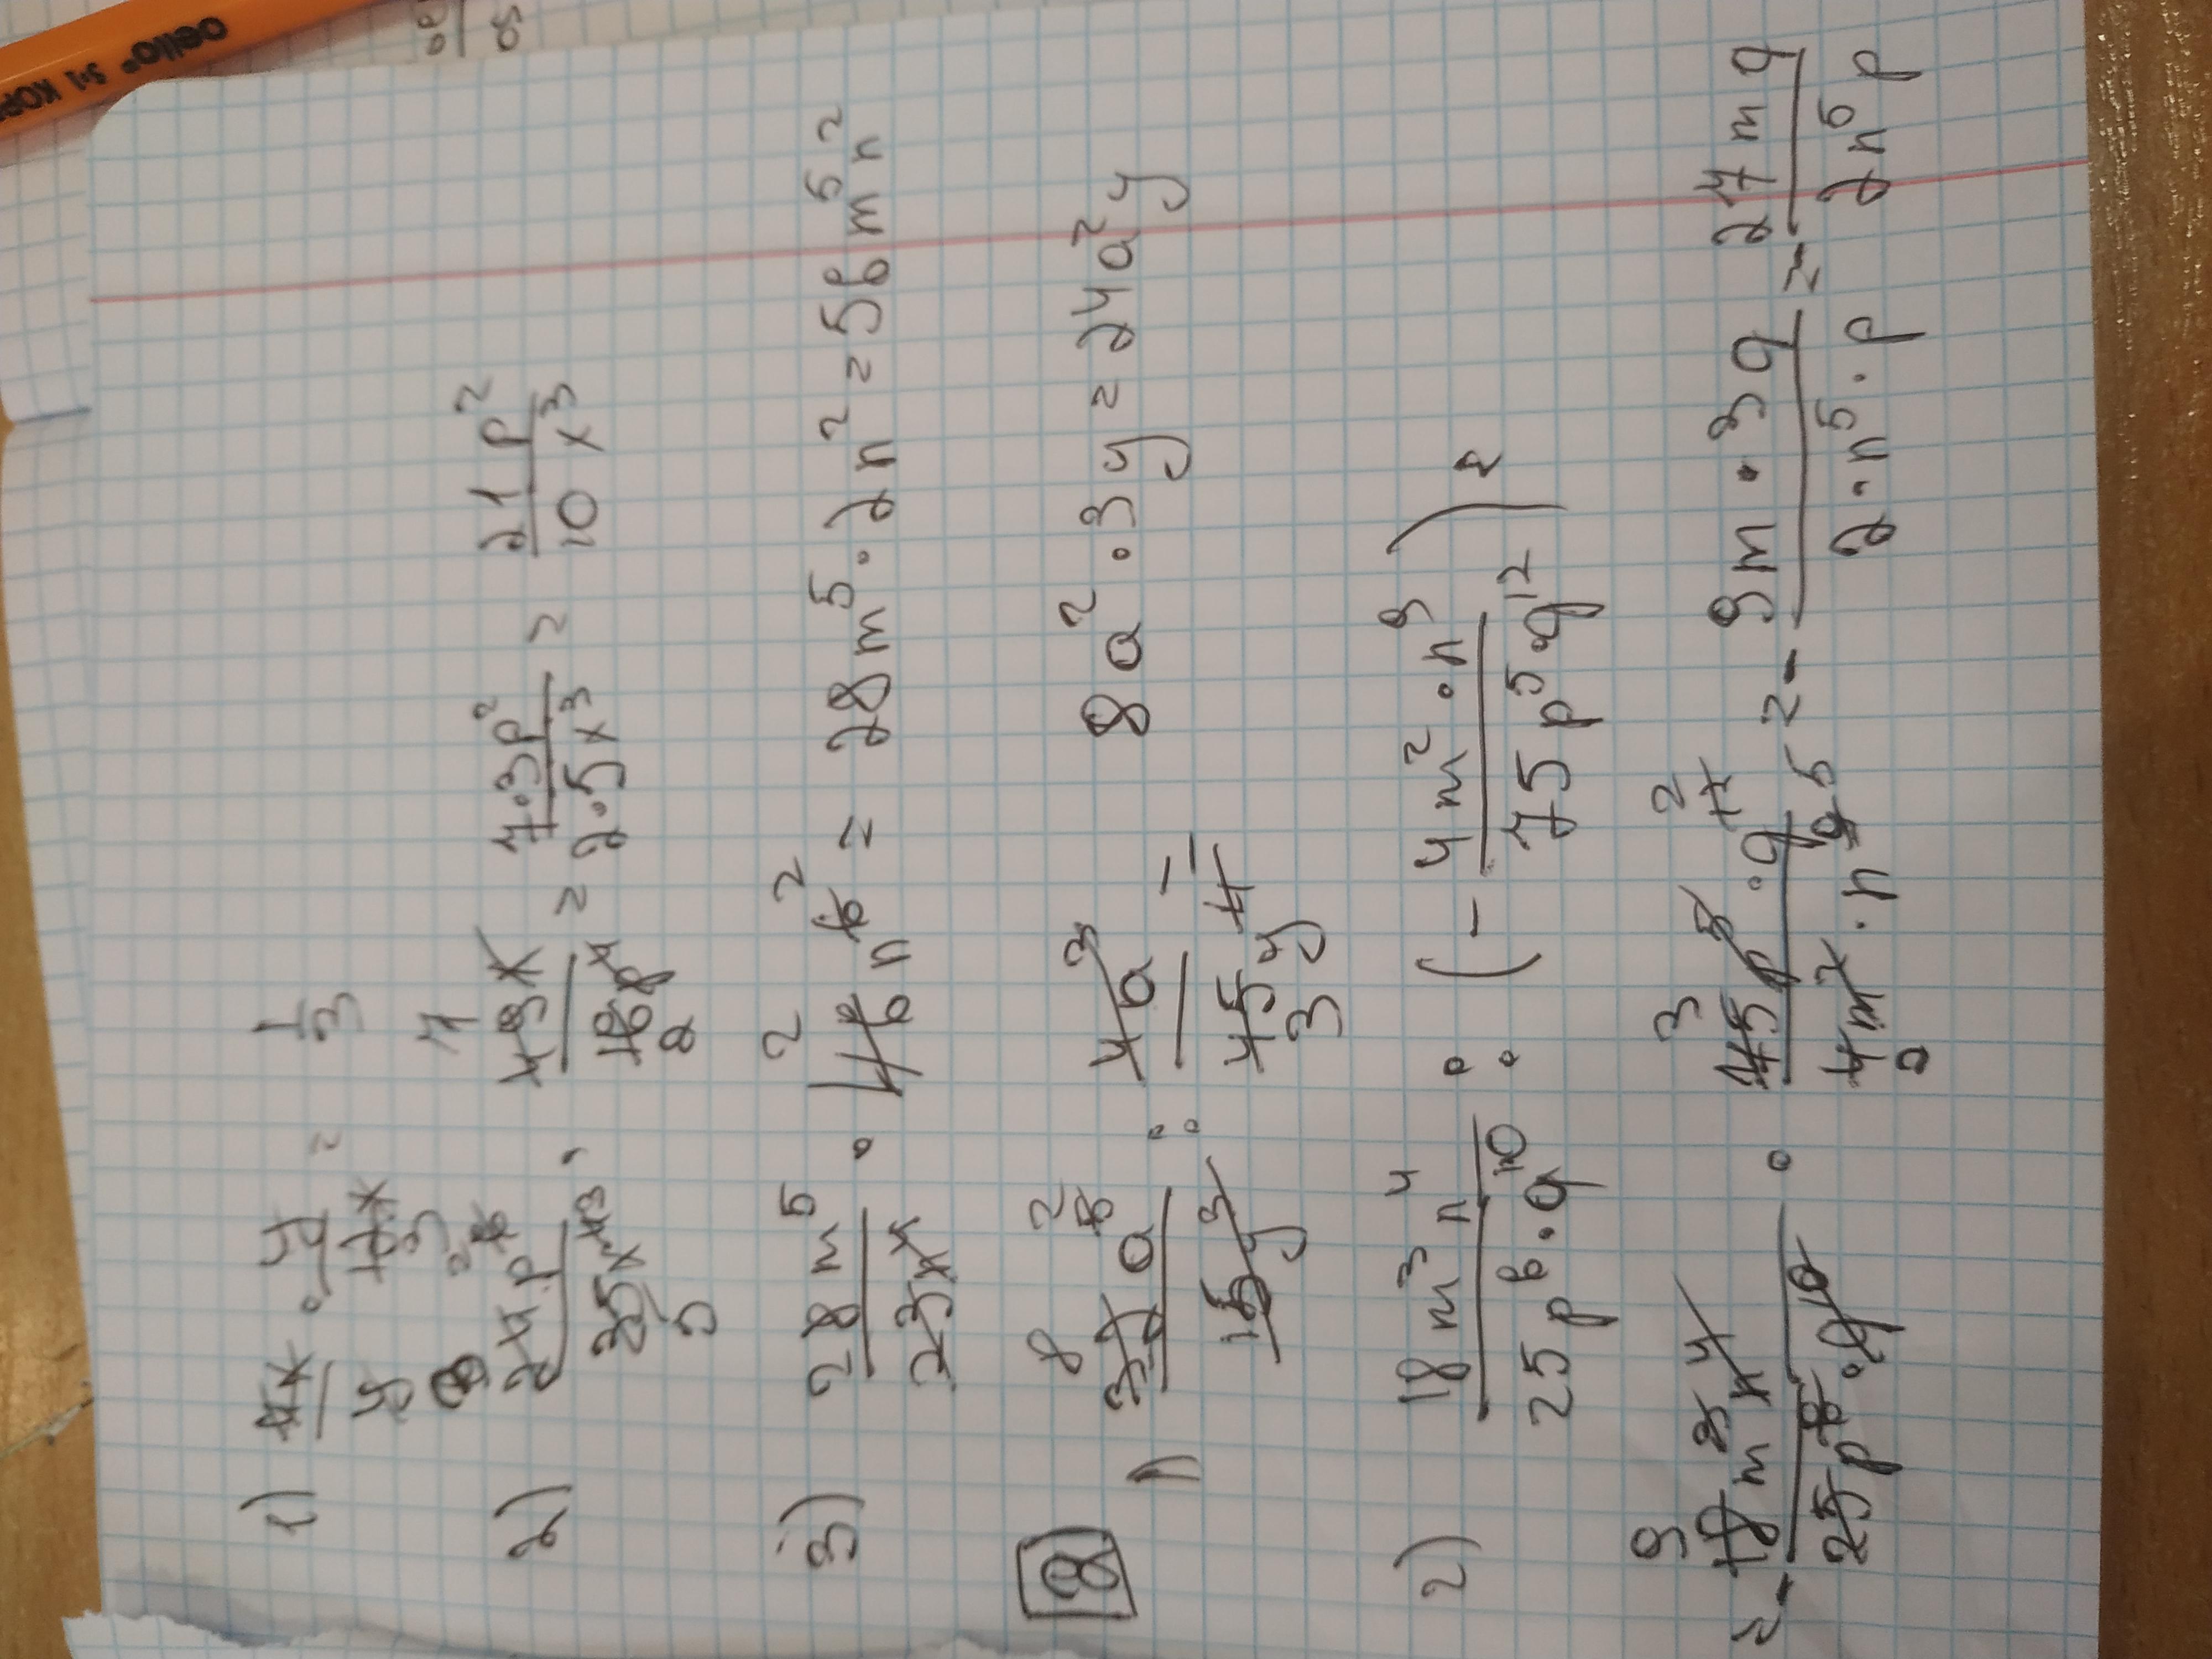 1) 4x/y · y/12x = 1/3
2) 24p⁶/35x⁴ · 49x/16p⁴ = 7·3p²/2·5x³ = 21p²/10x³
3) 28m⁵/23x⁴ · 46n² = 28m⁵·2n² = 56m⁵n²
8
1) 32a⁵/15y³ : 4a³/45y⁴ = 8a²·3y = 24a²y
2) 18m³n⁴/25p⁶·q¹⁰ : (- 4m²·n⁹/75p⁵q¹²) =
= - 18m³n⁴/25p⁶·q¹⁰ · 75p⁵·q¹²/4m²·n⁹ = - 9m·3q/2·n⁵·p = - 27mq/2n⁵p